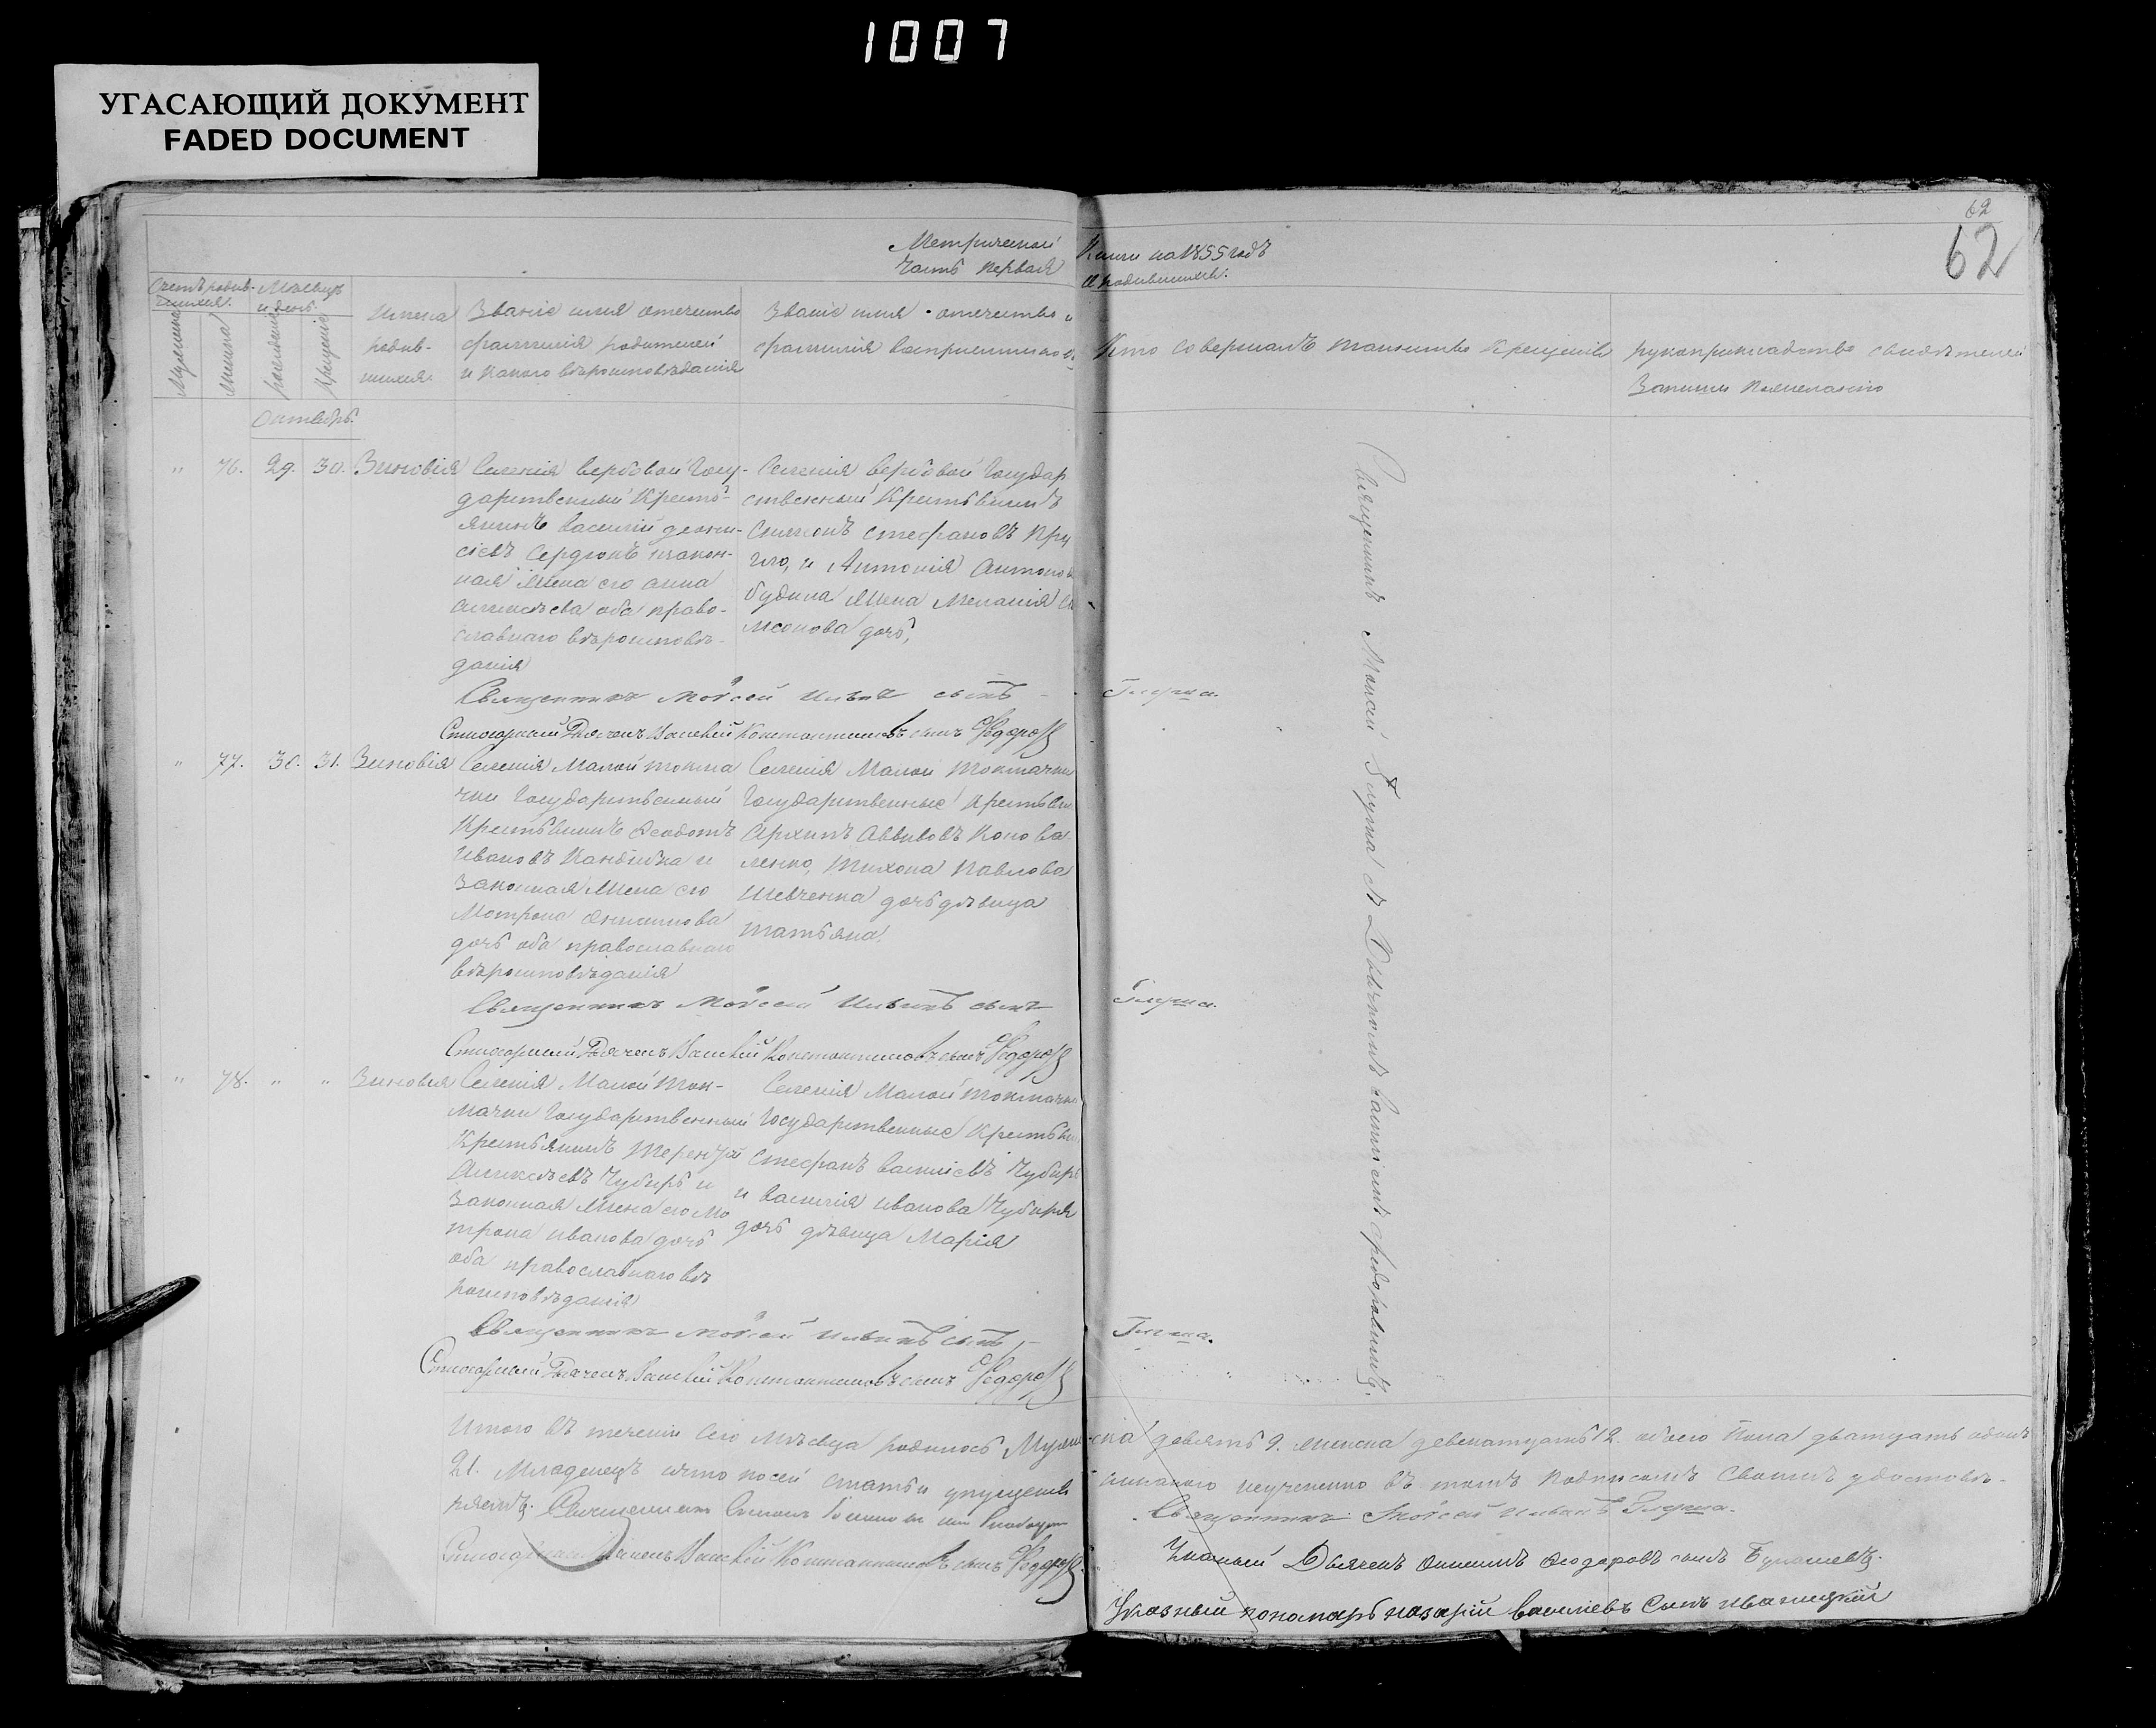 1007
УГАСАЮЩИЙ ДОКУМЕНТ
FADED DOCUMENT
62
62
Метрической Книги на 1855 годъ
Часть первая о родившихся.
Счетъ родив-шихся.
Мѣсяцъ и день
Мужеска
Женска
рожденія
крещенія
Имена
родив-
шихся
Званіе имя отечество
фамилія родителей
и какого вѣроисповѣданія
Званіе имя отечество и
фамилія воспріемниковъ
Кто совершалъ таинство крещенія
рукоприкладство свидѣтелей
записи по желанію
Октябрь.
" 76. 29. 30. Зиновія
Селенія вербовой Госу-
дарственный Кресть-
янинъ василій діони-
сіевъ Сердюкъ и закон-
ная жена его анна
алексѣева оба право-
славнаго вѣроисповѣ-
данія
Селенія вербовой Государ
ственный Крестьянинъ
Симеонъ стефановъ
и Антонія Антонова
жена Меланія
меонова дочь,
Священникъ Моѵсей Ильинъ сынъ Глуша.
Дьячекъ Василій Константиновъ сынъ Ѳедоров
" 77. 30. 31. Зиновія
Селенія Малой токма
чки Государственный
Крестьянинъ Ѳеодотъ
Ивановъ и
законная жена его
Матрона
дочь оба православнаго
вѣроисповѣданія
Селенія Малой токмачки
Государственные Крестьяне
Архипъ Коновa
ленко, Тихона Павлова
Шевченка дочь дѣвица
татьяна.
Священникъ Моѵсей Ильинъ сынъ Глуша.
Дьячекъ Василій Константиновъ сынъ Ѳедоров
" 78. " " Зиновія
Селенія Малой ток-
мачки Государственный
Крестьянинъ терентій
Алексѣевъ Чубирь и
законная жена его Ма
трона иванова дочь
оба православнаго вѣ
роисповѣданія
Селенія Малой токмачки
Государственные Крестьяне
стефанъ василіевъ Чубирь
и василія иванова Чубиря
дочь дѣвица Марія
Священникъ Моѵсей Ильинъ сынъ Глуша.
Дьячекъ Василій Константиновъ сынъ Ѳедоров
Священникъ Моисей Глуша съ Дьячкомъ
Итого въ теченіи сего мѣсяца родилось Мужеска девять 9. женска двенатцать 12. обоего пола дватцать одинъ
21. Младенецъ и что по сей статьи упущенія никакого неучинено въ томъ подписомъ своимъ удостовѣ-
ряемъ. Священникъ
Священникъ Моѵсей Ильинъ Глуша.
Дьячекъ Василій Константиновъ сынъ Ѳедоров
Указный Дьячекъ сынъ
Указный пономарь назарій василіевъ сынъ иваницкій